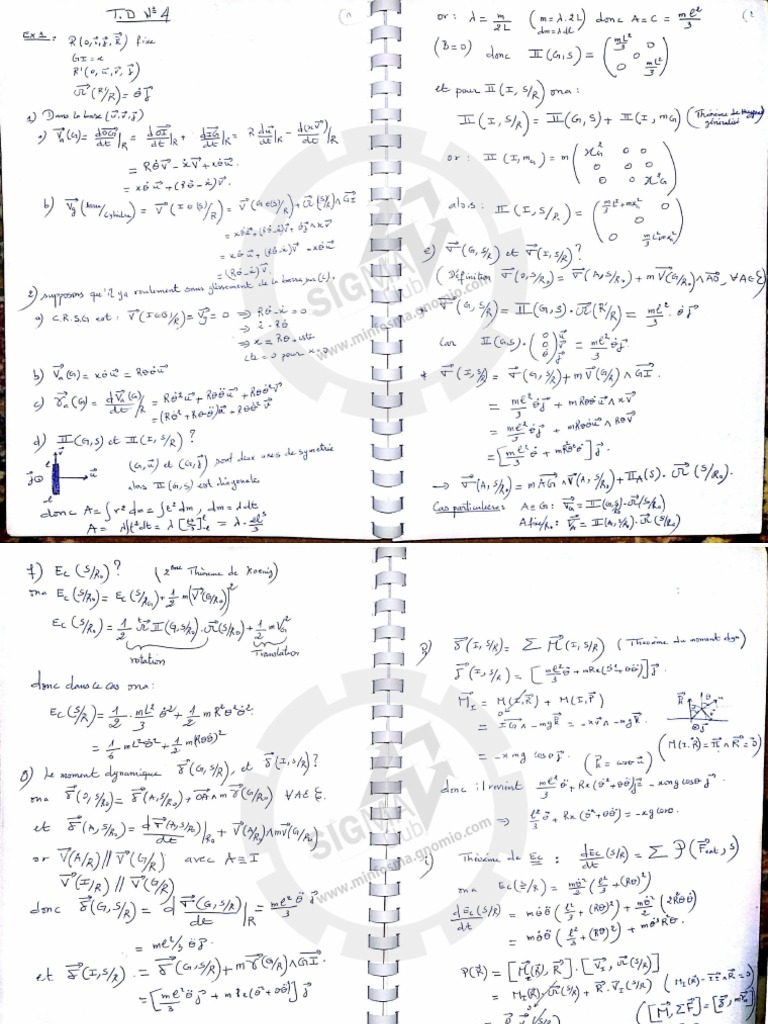 T.D N° 4
(1
Ex 1: R(O, i⃗, j⃗, k⃗) fixe
GI = x
R'(O, u⃗, v⃗, j⃗)
Ω⃗(R'/R) = θ̇ j⃗
1) Dans la base (u⃗, v⃗, j⃗)
a) V⃗a(G) = dOG⃗/dt|R = dOI⃗/dt|R + dIG⃗/dt|R = R du⃗/dt|R - d(xv⃗)/dt|R
= Rθ̇v⃗ - ẋv⃗ + xθ̇u⃗
= xθ̇u⃗ + (Rθ̇ - ẋ)v⃗.
b) V⃗g(barre/cylindre) = V⃗(I∈(S)/R) = V⃗(G∈(S)/R) + Ω⃗(S/R) ∧ GI⃗
= xθ̇u⃗ + (Rθ̇-ẋ)v⃗ + θ̇j⃗ ∧ xv⃗
= xθ̇u⃗ + (Rθ̇-ẋ)v⃗ - xθ̇u⃗
= (Rθ̇-ẋ)v⃗.
2) supposons qu'il y a roulement sans glissement de la barre sur (c).
a) C.R.S.G est : V⃗(I∈S/R) = V⃗g = 0 ⇒ Rθ̇ - ẋ = 0
⇒ ẋ = Rθ̇
⇒ x = Rθ + cste
cte = 0 pour x=0
b) V⃗a(G) = xθ̇u⃗ = Rθθ̇u⃗
c) γ⃗a(G) = dV⃗a(G)/dt|R = Rθ̇²u⃗ + Rθθ̈u⃗ + Rθθ̇²v⃗
= (Rθ̇² + Rθθ̈)u⃗ + Rθθ̇²v⃗
d) II(G,S) et II(I, S/R) ?
(G, u⃗) et (G, j⃗) sont deux axes de symetrie
alors II(G,S) est diagonale
donc A = ∫r²dm = ∫l²dm, dm = λdl
A = λ∫l²dl = λ[l³/3] = λ·2l³/3
(2
or : λ = m/2L (m = λ.2L) donc A = C = ml²/3
dm = λdl
(B=0) donc II(G,S) = (ml²/3 0 0
0
0 0 ml²/3)
et pour II(I, S/R) ona :
II(I, S/R) = II(G,S) + II(I, mG) (Théorème de Huygens
généralisé)
or : II(I, mG) = m (x²G 0 0
0 0 0
0 0 x²G)
alors : II(I, S/R) = (ml²/3+mx² 0
0
0 ml²/3+mx²)
e) σ⃗(G, S/R) et σ⃗(I, S/R) ?
(Définition σ⃗(O, S/R₀) = σ⃗(A, S/R₀) + m V⃗(G/R₀) ∧ AO⃗, ∀A∈Σ)
* σ⃗(G, S/R) = II(G,S) . Ω⃗(R'/R) = ml²/3 . θ̇j⃗
car II(G,S) . (0 0 θ̇) u⃗ v⃗ j⃗ = ml²/3 θ̇j⃗
* σ⃗(I, S/R) = σ⃗(G, S/R) + m V⃗(G/R) ∧ GI⃗.
= ml²/3 θ̇j⃗ + mRθθ̇u⃗ ∧ xv⃗
= ml²/3 θ̇j⃗ + mRθθ̇u⃗ ∧ Rθv⃗
= [ml²/3 θ̇ + mR²θ²θ̇] j⃗
→ σ⃗(A, S/R₀) = m AG⃗ ∧ V⃗(A, S/R₀) + IIA(S) . Ω⃗(S/R₀).
Cas particuliers: A≡G: σ⃗G = II(G,S).Ω⃗(S/R₀)
A fixe/R₀: σ⃗A = II(A, S/R₀).Ω⃗(S/R₀)
f) Ec(S/R₀) ? (2ème Théorème de Koenig)
ona Ec(S/R₀) = Ec(S/RG) + 1/2 m(V⃗(G/R₀))²
Ec(S/R₀) = 1/2 Ω⃗ II(G, S/R₀).Ω⃗(S/R₀) + 1/2 mV²G
rotation Translation
donc dans ce cas ona :
Ec(S/R) = 1/2 . ml²/3 . θ̇² + 1/2 mR²θ²θ̇²
= 1/6 ml²θ̇² + 1/2 m(Rθθ̇)²
g) Le moment dynamique δ⃗(G, S/R), et δ⃗(I, S/R) ?
ona δ⃗(O, S/R₀) = δ⃗(A, S/R₀) + OA⃗ ∧ mγ⃗(G/R₀) ∀A∈Σ.
et δ⃗(A, S/R₀) = dσ⃗(A, S/R₀)/dt|R₀ + V⃗(A/R₀) ∧ mV⃗(G/R₀)
or V⃗(A/R) // V⃗(G/R) avec A ≡ I
V⃗(I/R) // V⃗(G/R)
donc δ⃗(G, S/R) = dσ⃗(G, S/R)/dt|R = ml²/3 θ̈j⃗
= ml²/3 θ̈j⃗.
et δ⃗(I, S/R) = δ⃗(G, S/R) + mγ⃗(G/R) ∧ GI⃗.
= [ml²/3 θ̈j⃗ + mRx(θ̇² + θθ̈)] j⃗
h) δ⃗(I, S/R) = Σ M⃗(I, S/R) (Théorème du moment dyn)
δ⃗(I, S/R) = [ml²/3 θ̈ + mRx(θ̇² + θθ̈)] j⃗.
M⃗I = M(I, R⃗) + M(I, P⃗)
= IG⃗ ∧ -mgk⃗ = -xv⃗ ∧ -mgk⃗.
= -xmg cosθ j⃗. (k⃗ = cosθ u⃗)
(M(I, R⃗) = II⃗ ∧ R⃗ = 0⃗)
donc : il revient ml²/3 θ̈ + Rx(θ̇² + θθ̈)j⃗ = -xmg cosθ j⃗
⇒ l²/3 θ̈ + Rx(θ̇² + θθ̈) = -xg cosθ.
i) Théorème de Ec : dEc(S/R)/dt = Σ P(F⃗ext, S)
ona Ec(S/R) = mθ̇²/2 (l²/3 + (Rθ)²)
dEc(S/R)/dt = mθ̇θ̈(l²/3 + (Rθ)²) + mθ̇²/2 (2R²θθ̇)
= mθ̇θ̈(l²/3 + (Rθ)²) + mθ̇³R²θ.
P(R⃗) = [M⃗I(R⃗), R⃗] . [V⃗I, Ω⃗(S/R)]
= MI(R⃗).Ω⃗(S/R) + R⃗.V⃗I(S/R) (MI(R⃗) = II⃗ ∧ R⃗ = 0⃗)
([M⃗, ΣF⃗] = [δ⃗, mγ⃗a]
SIGMA
Hub
www.minfosma.gnomio.com
SIGMA
Hub
www.minfosma.gnomio.com